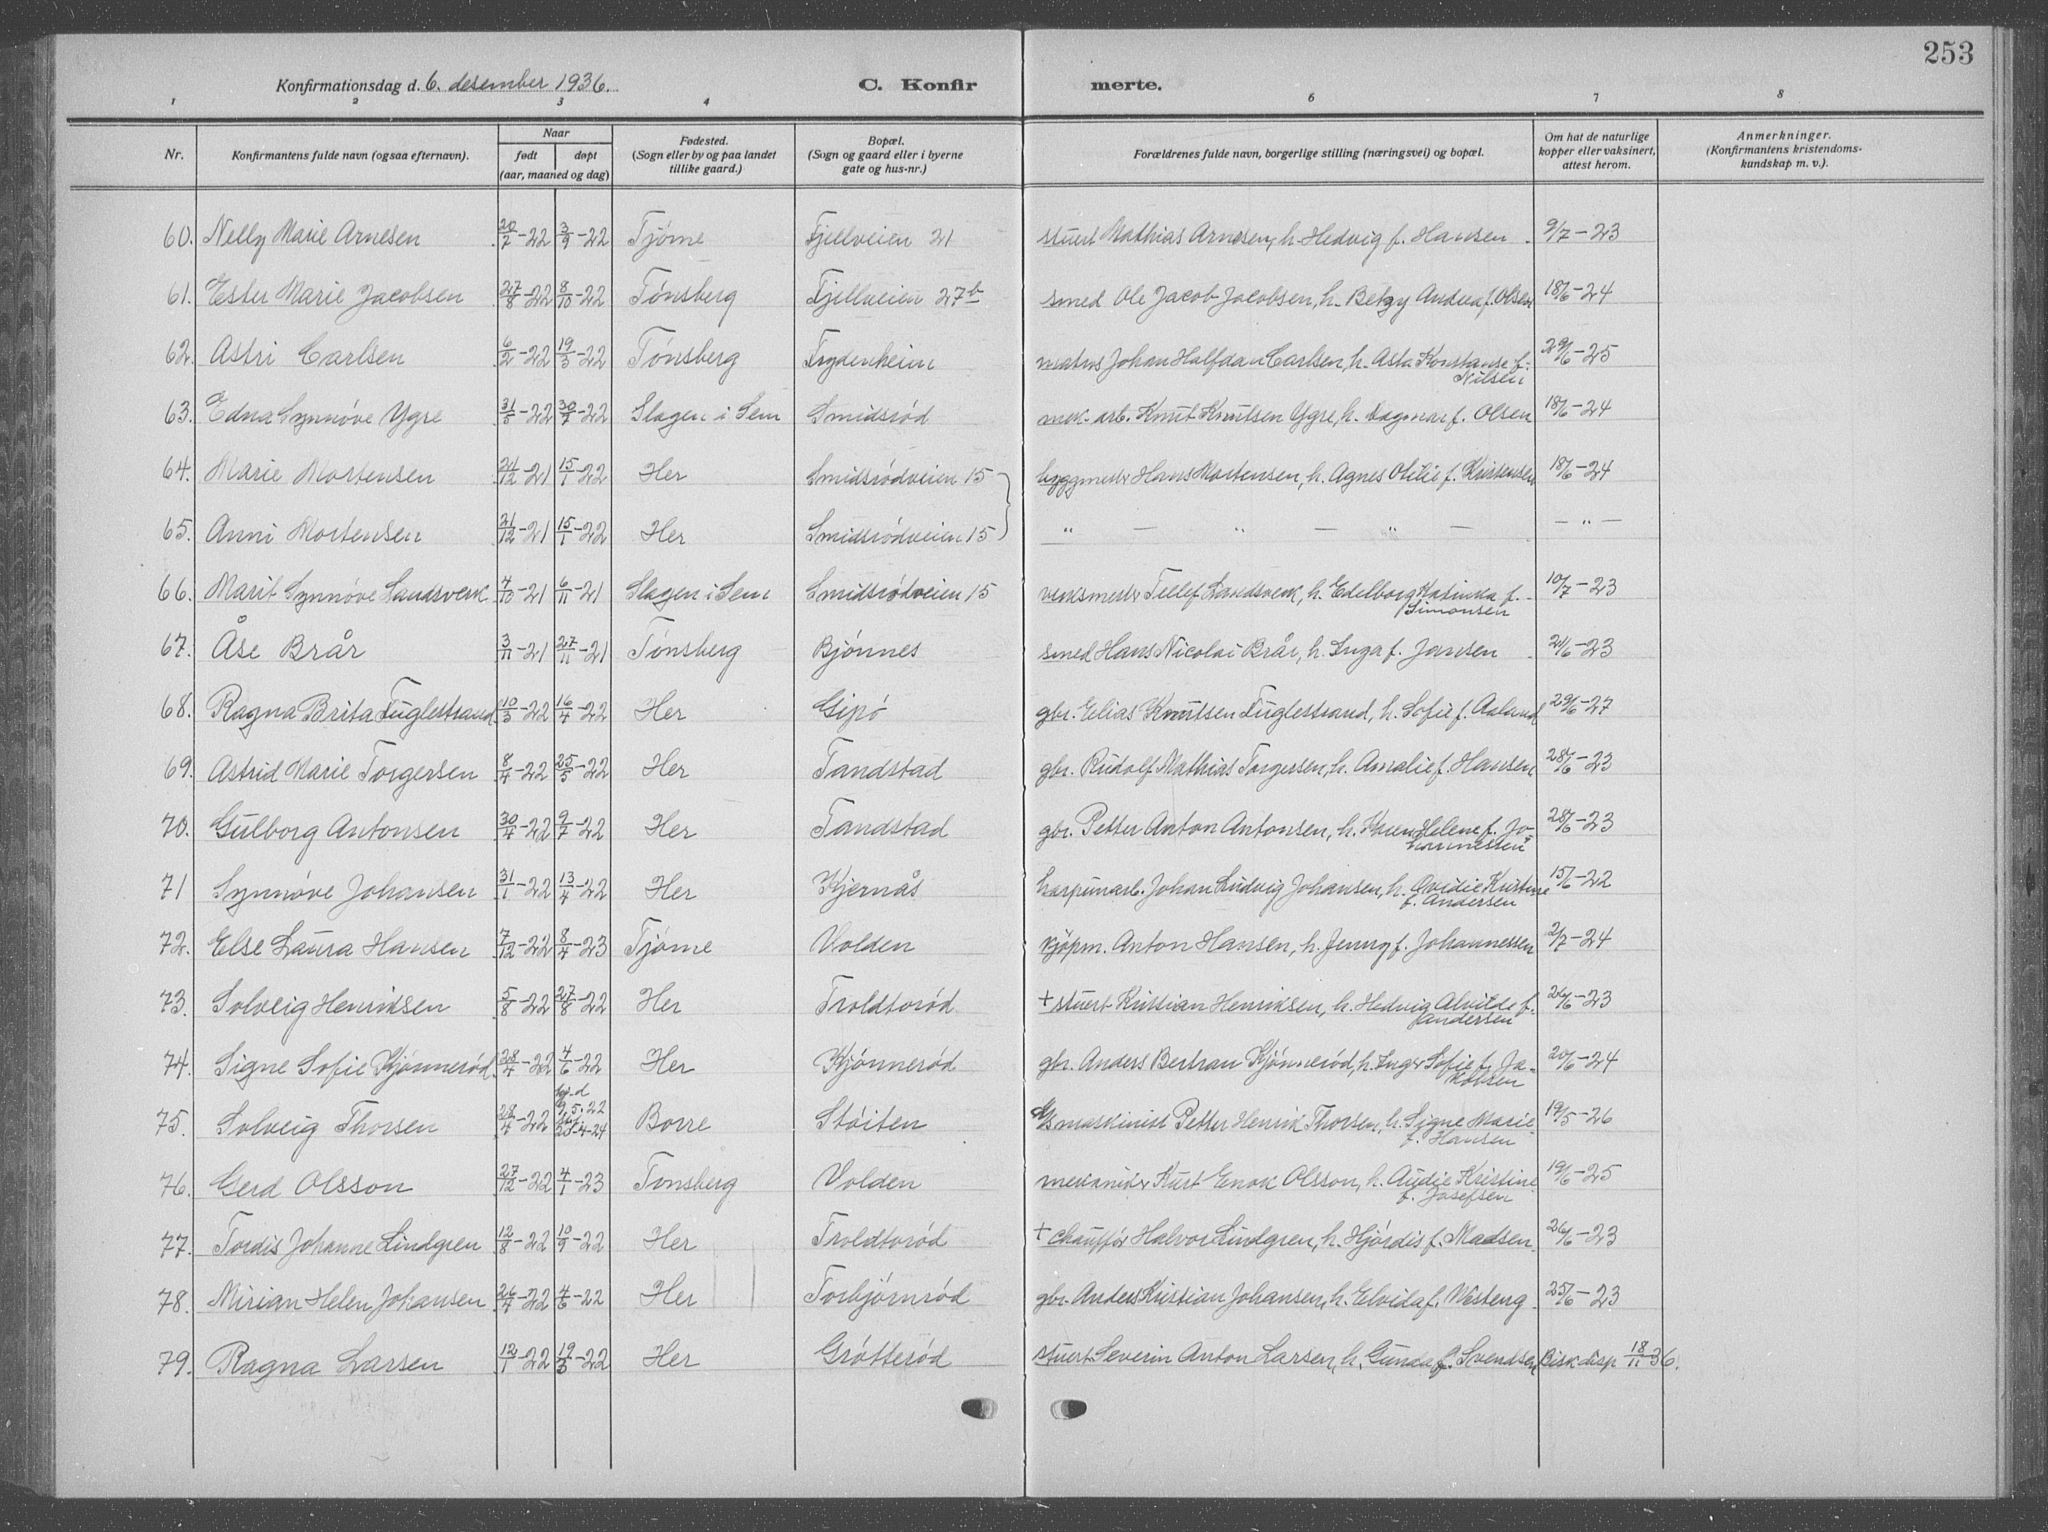 253
Konfirmationsdag d. 6. desember 1936.
C. Konfir merte.
1 2 3 4 6 7 8
Nr.
Konfirmantens fulde navn (ogsaa efternavn).
Naar
født døpt
(aar, maaned og dag)
Fødested.
(Sogn eller by og paa landet
tillike gaard.)
Bopæl.
(Sogn og gaard eller i byerne
gate og hus-nr.)
Forældrenes fulde navn, borgerlige stilling (næringsvei) og bopæl.
Om hat de naturlige
kopper eller vaksinert,
attest herom.
Anmerkninger.
(Konfirmantens kristendoms-
kundskap m. v.).
60. Nelly Marie Arnesen 20/7-22 3/9-22 Tjøme Fjellveien 21 stuert Mathias Arnesen, h. Hedvig f. Hansen 9/7-23
61. Ester Marie Jacobsen 27/8-22 8/10-22 Tønsberg Fjellveien 27b smed Ole Jacob Jacobsen, h. Betzy Andrea f. Olsen 18/6-24
62. Astri Carlsen 6/2-22 19/3-22 Tønsberg Frydenheim matros Johan Halfdan Carlsen, h. Asta Konstanse f. Nilsen 29/6-25
63. Edna Synnøve Ygre 31/5-22 30/7-22 Slagen i Sem Smidsrød mek. arb. Knut Knutsen Ygre, h. Dagmar f. Olsen 18/6-24
64. Marie Mortensen 21/12-21 15/1-22 Her Smidsrødveien 15 byggmester Hans Mortensen, h. Agnes Otilie f. Kristensen 18/6-24
65. Anni Mortensen 21/12-21 15/1-22 Her Smidsrødveien 15 " — " — " — — " —
66. Marit Synnøve Landsverk 4/10-21 6/11-21 Slagen i Sem Smidsrødveien 15 verksmester Tellef Landsverk, h. Edelborg Katinka f. Simonsen 10/7-23
67. Åse Brår 3/11-21 27/11-21 Tønsberg Bjønnes smed Hans Nicolai Brår, h. Inga f. Jansen 21/6-23
68. Ragna Brita Fuglestrand 10/3-22 16/4-22 Her Gipø gbr. Elias Knutsen Fuglestrand, h. Sofie f. Aaland 29/6-27
69. Astrid Marie Torgersen 8/4-22 25/5-22 Her Tandstad gbr. Rudolf Mathias Torgersen, h. Amalie f. Hansen 28/6-23
70. Gulborg Antonsen 30/4-22 9/7-22 Her Tandstad gbr. Petter Anton Antonsen, h. Karen Helene f. Johannessen 28/6-23
71 Synnøve Johansen 31/1-22 13/4-22 Her Kjernås harpunarb. Johan Ludvig Johansen, h. Ovidie Kristine f. Andersen 15/6-22
72. Else Laura Hansen 7/12-22 8/4-23 Tjøme Volden kjøpm. Anton Hansen, h. Jenny f. Johannessen 2/7-24
73. Solveig Henriksen 5/8-22 27/8-22 Her Troldtorød + stuert Kristian Henriksen, h. Hedvig Alvilde f. Andersen 26/6-23
74. Signe Sofie Kjønnerød 28/4-22 4/6-22 Her Kjønnerød gbr. Anders Bertran Kjønnerød, h. Inger Sofie f. Jakobsen 20/6-24
75. Solveig Thorsen 28/4-22 9.5.22 20-4-24 Borre Støiten maskinist Petter Henrik Thorsen, h. Signe Marie f. Hansen 19/5-26
76. Gerd Olsson 27/12-22 4/1-23 Tønsberg Volden mekaniker Kurt Enok Olsson, h. Audie Kristine f. Josefsen 19/6-25
77. Tordis Johanne Lindgren 12/8-22 10/9-22 Her Troldtorød + chauffør Halvor Lindgren, h. Hjørdis f. Madsen 26/6-23
78. Mirian Helen Johansen 26/4-22 4/6-22 Her Torbjørnrød gbr. Anders Kristian Johansen, h. Elvida f. Westeng 25/6-23
79. Ragna Larsen 12/1-22 19/3-22 Her Grøtterød stuert Severin Anton Larsen, h. Gunda f. Svendsen Bisk. disp 18/11 36.